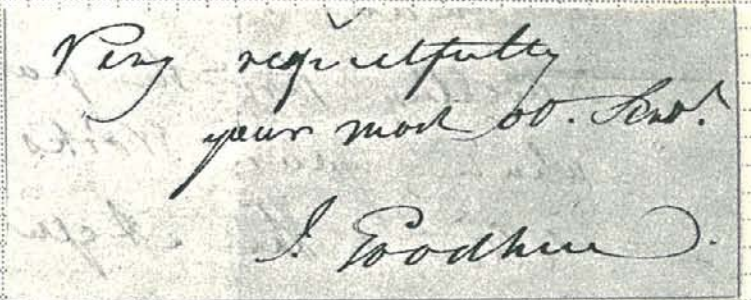 Very respectfully
your most ob. Servt.
J. Goodhue.